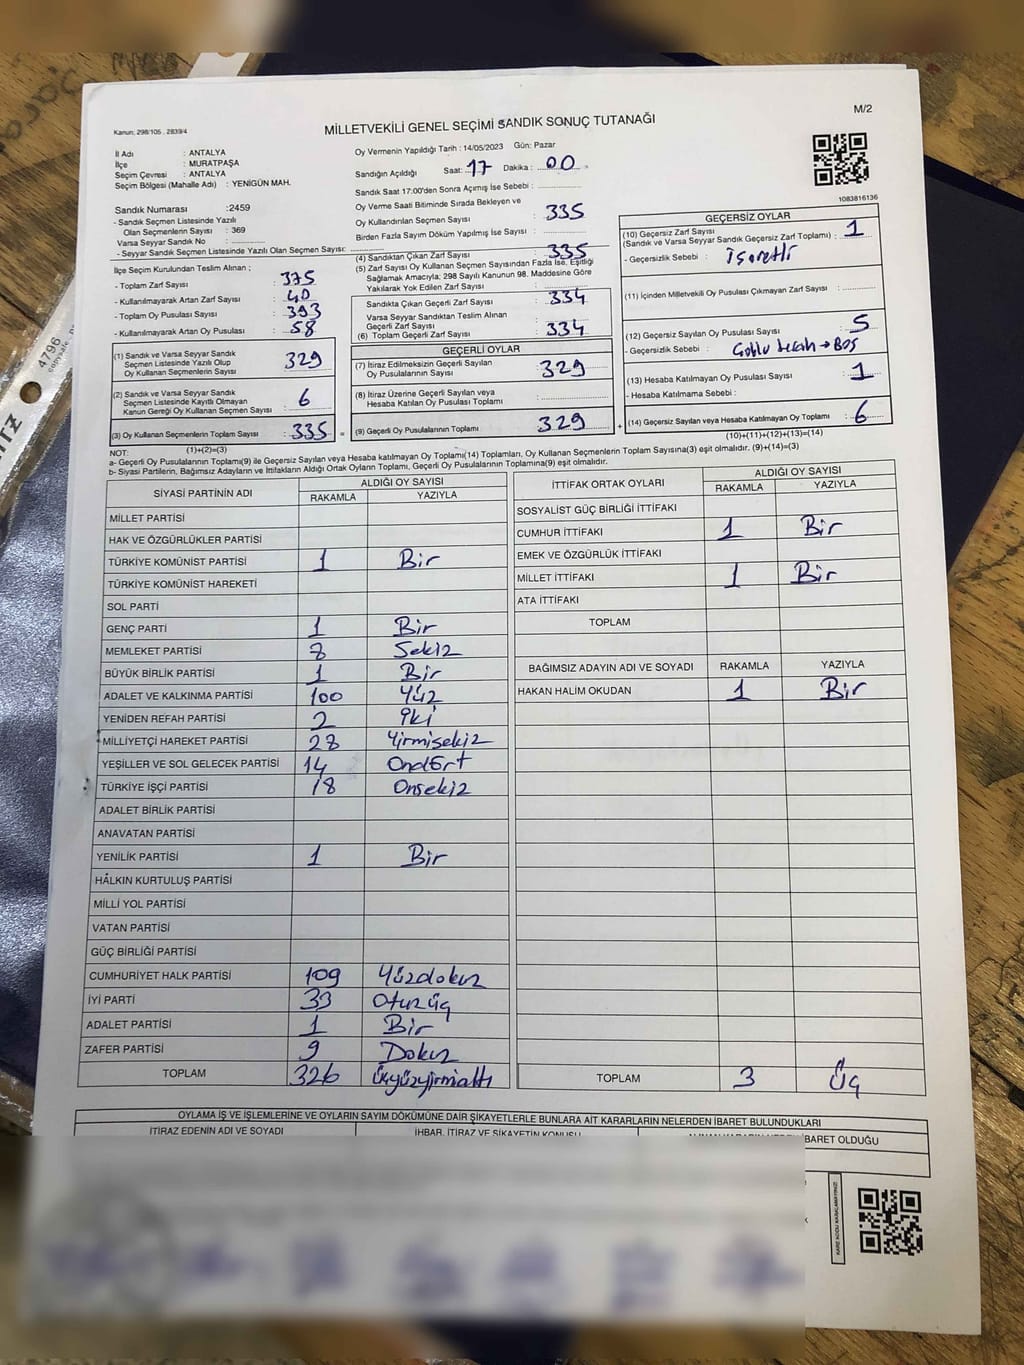 M/2
Kanun: 298/105 , 2839/4
MİLLETVEKİLİ GENEL SEÇİMİ SANDIK SONUÇ TUTANAĞI
İl Adı : ANTALYA
İlçe : MURATPAŞA
Seçim Çevresi : ANTALYA
Seçim Bölgesi (Mahalle Adı) : YENİGÜN MAH.
Sandık Numarası :2459
- Sandık Seçmen Listesinde Yazılı
Olan Seçmenlerin Sayısı : 369
Varsa Seyyar Sandık No :
- Seyyar Sandık Seçmen Listesinde Yazılı Olan Seçmen Sayısı:
Oy Vermenin Yapıldığı Tarih : 14/05/2023 Gün: Pazar
Sandığın Açıldığı Saat: 17 Dakika : 00
Sandık Saat 17:00'den Sonra Açımış İse Sebebi :
Oy Verme Saati Bitiminde Sırada Bekleyen ve
Oy Kullandırılan Seçmen Sayısı : 335
Birden Fazla Sayım Döküm Yapılmış İse Sayısı :
1083816136
İlçe Seçim Kurulundan Teslim Alınan ;
- Toplam Zarf Sayısı : 375
- Kullanılmayarak Artan Zarf Sayısı : 40
- Toplam Oy Pusulası Sayısı : 393
- Kullanılmayarak Artan Oy Pusulası : 58
(1) Sandık ve Varsa Seyyar Sandık
Seçmen Listesinde Yazılı Olup
Oy Kullanan Seçmenlerin Sayısı : 329
(2) Sandık ve Varsa Seyyar Sandık
Seçmen Listesinde Kayıtlı Olmayan
Kanun Gereği Oy Kullanan Seçmen Sayısı : 6
(3) Oy Kullanan Seçmenlerin Toplam Sayısı : 335
(4) Sandıktan Çıkan Zarf Sayısı : 335
(5) Zarf Sayısı Oy Kullanan Seçmen Sayısından Fazla İse, Eşitliği
Sağlamak Amacıyla; 298 Sayılı Kanunun 98. Maddesine Göre
Yakılarak Yok Edilen Zarf Sayısı :
Sandıkta Çıkan Geçerli Zarf Sayısı : 334
Varsa Seyyar Sandıktan Teslim Alınan
Geçerli Zarf Sayısı :
(6) Toplam Geçerli Zarf Sayısı : 334
GEÇERLİ OYLAR
(7) İtiraz Edilmeksizin Geçerli Sayılan
Oy Pusulalarının Sayısı : 329
(8) İtiraz Üzerine Geçerli Sayılan veya
Hesaba Katılan Oy Pusulası Toplamı :
(9) Geçerli Oy Pusulalarının Toplamı : 329
GEÇERSİZ OYLAR
(10) Geçersiz Zarf Sayısı
(Sandık ve Varsa Seyyar Sandık Geçersiz Zarf Toplamı) : 1
- Geçersizlik Sebebi : işaretli
(11) İçinden Milletvekili Oy Pusulası Çıkmayan Zarf Sayısı :
(12) Geçersiz Sayılan Oy Pusulası Sayısı : 5
- Geçersizlik Sebebi : → Boş
(13) Hesaba Katılmayan Oy Pusulası Sayısı : 1
- Hesaba Katılmama Sebebi :
(14) Geçersiz Sayılan veya Hesaba Katılmayan Oy Toplamı : 6
(10)+(11)+(12)+(13)=(14)
NOT: (1)+(2)=(3)
a- Geçerli Oy Pusulaları Toplamı(9) ile Geçersiz Sayılan veya Hesaba Katılmayan oy Toplamı(14) Toplamları, Oy Kullanan Seçmenlerin Toplam Sayısına(3) eşit olmalıdır. (9)+(14)=(3)
b- Siyasi Partilerin, Bağımsız Adayların ve İttifakların Aldığı Ortak Oyların Toplamı, Geçerli Oy Pusulalarının Toplamına(9) eşit olmalıdır.
SİYASİ PARTİNİN ADI ALDIĞI OY SAYISI
RAKAMLA YAZIYLA
MİLLET PARTİSİ
HAK VE ÖZGÜRLÜKLER PARTİSİ
TÜRKİYE KOMÜNİST PARTİSİ 1 Bir
TÜRKİYE KOMÜNİST HAREKETİ
SOL PARTİ
GENÇ PARTİ 1 Bir
MEMLEKET PARTİSİ 8 Sekiz
BÜYÜK BİRLİK PARTİSİ 1 Bir
ADALET VE KALKINMA PARTİSİ 100 Yüz
YENİDEN REFAH PARTİSİ 2 iki
MİLLİYETÇİ HAREKET PARTİSİ 28 Yirmisekiz
YEŞİLLER VE SOL GELECEK PARTİSİ 14 Ondört
TÜRKİYE İŞÇİ PARTİSİ 18 Onsekiz
ADALET BİRLİK PARTİSİ
ANAVATAN PARTİSİ
YENİLİK PARTİSİ 1 Bir
HALKIN KURTULUŞ PARTİSİ
MİLLİ YOL PARTİSİ
VATAN PARTİSİ
GÜÇ BİRLİĞİ PARTİSİ
CUMHURİYET HALK PARTİSİ 109 Yüzdokuz
İYİ PARTİ 33 Otuzüç
ADALET PARTİSİ 1 Bir
ZAFER PARTİSİ 9 Dokuz
TOPLAM 326 üçyüzyirmialtı
İTTİFAK ORTAK OYLARI ALDIĞI OY SAYISI
RAKAMLA YAZIYLA
SOSYALİST GÜÇ BİRLİĞİ İTTİFAKI
CUMHUR İTTİFAKI 1 Bir
EMEK VE ÖZGÜRLÜK İTTİFAKI
MİLLET İTTİFAKI 1 Bir
ATA İTTİFAKI
TOPLAM
BAĞIMSIZ ADAYIN ADI VE SOYADI RAKAMLA YAZIYLA
HAKAN HALİM OKUDAN 1 Bir
TOPLAM 3 Üç
OYLAMA İŞ VE İŞLEMLERİNE VE OYLARIN SAYIM DÖKÜMÜNE DAİR ŞİKAYETLERLE BUNLARA AİT KARARLARIN NELERDEN İBARET BULUNDUKLARI
İTİRAZ EDENİN ADI VE SOYADI İHBAR, İTİRAZ VE ŞİKAYETİN KONUSU İBARET OLDUĞU
KARE KODU KARALAMAYINIZ!
4796